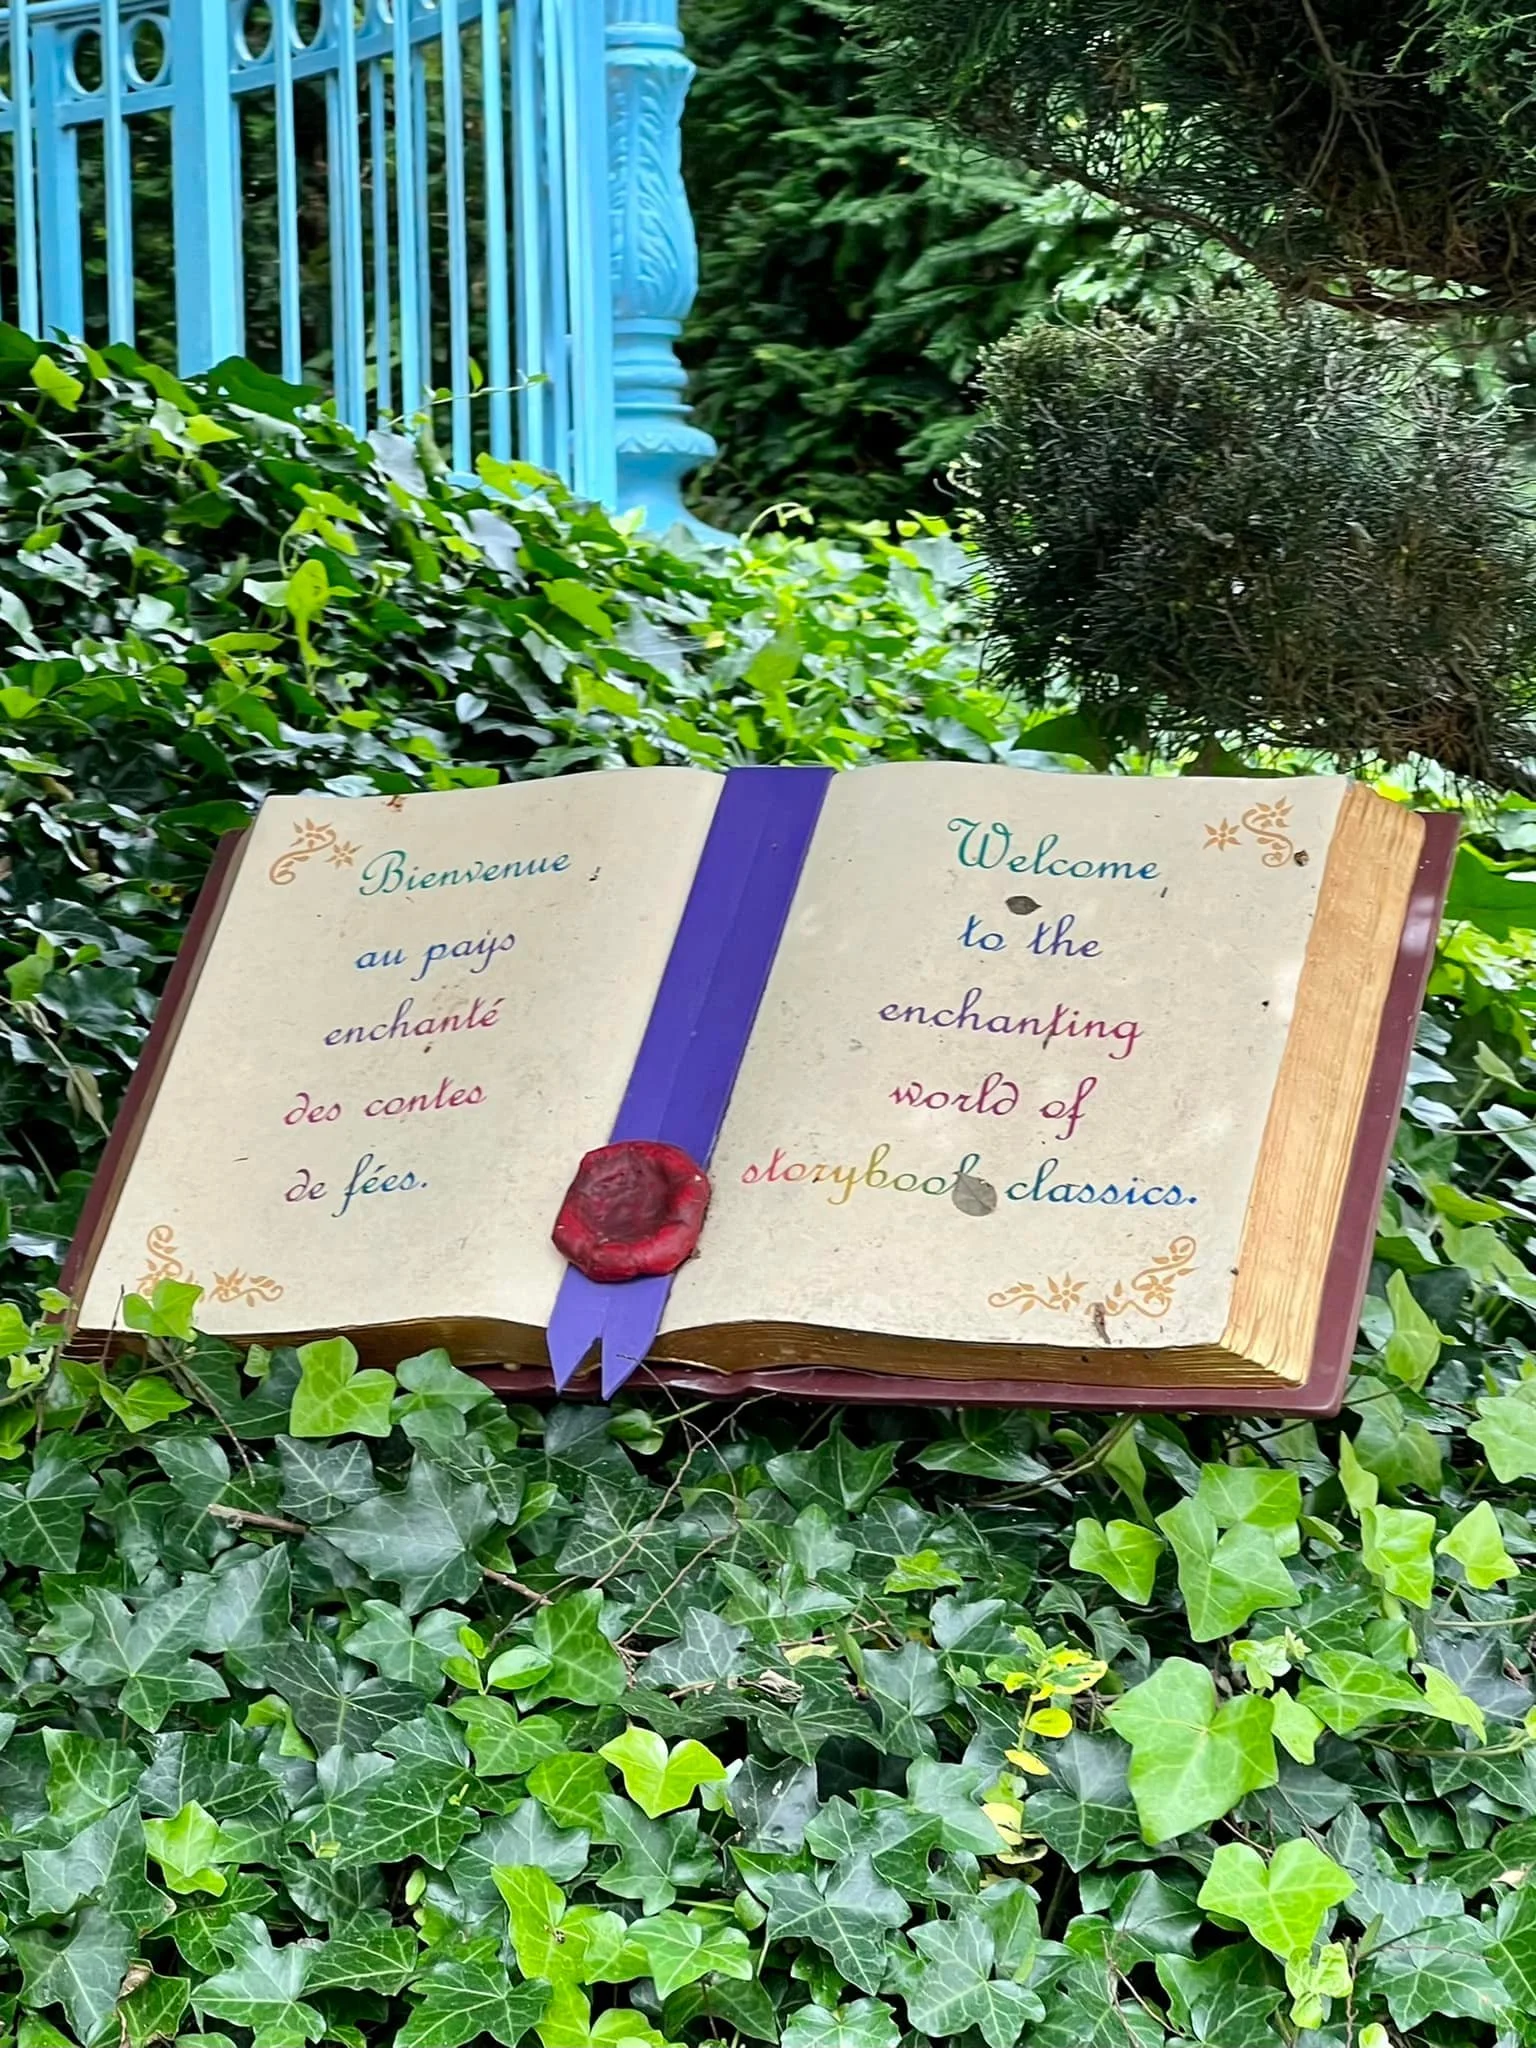 Bienvenue
au pays
enchanté
des contes
de fées.
Welcome
to the
enchanting
world of
storybook classics.